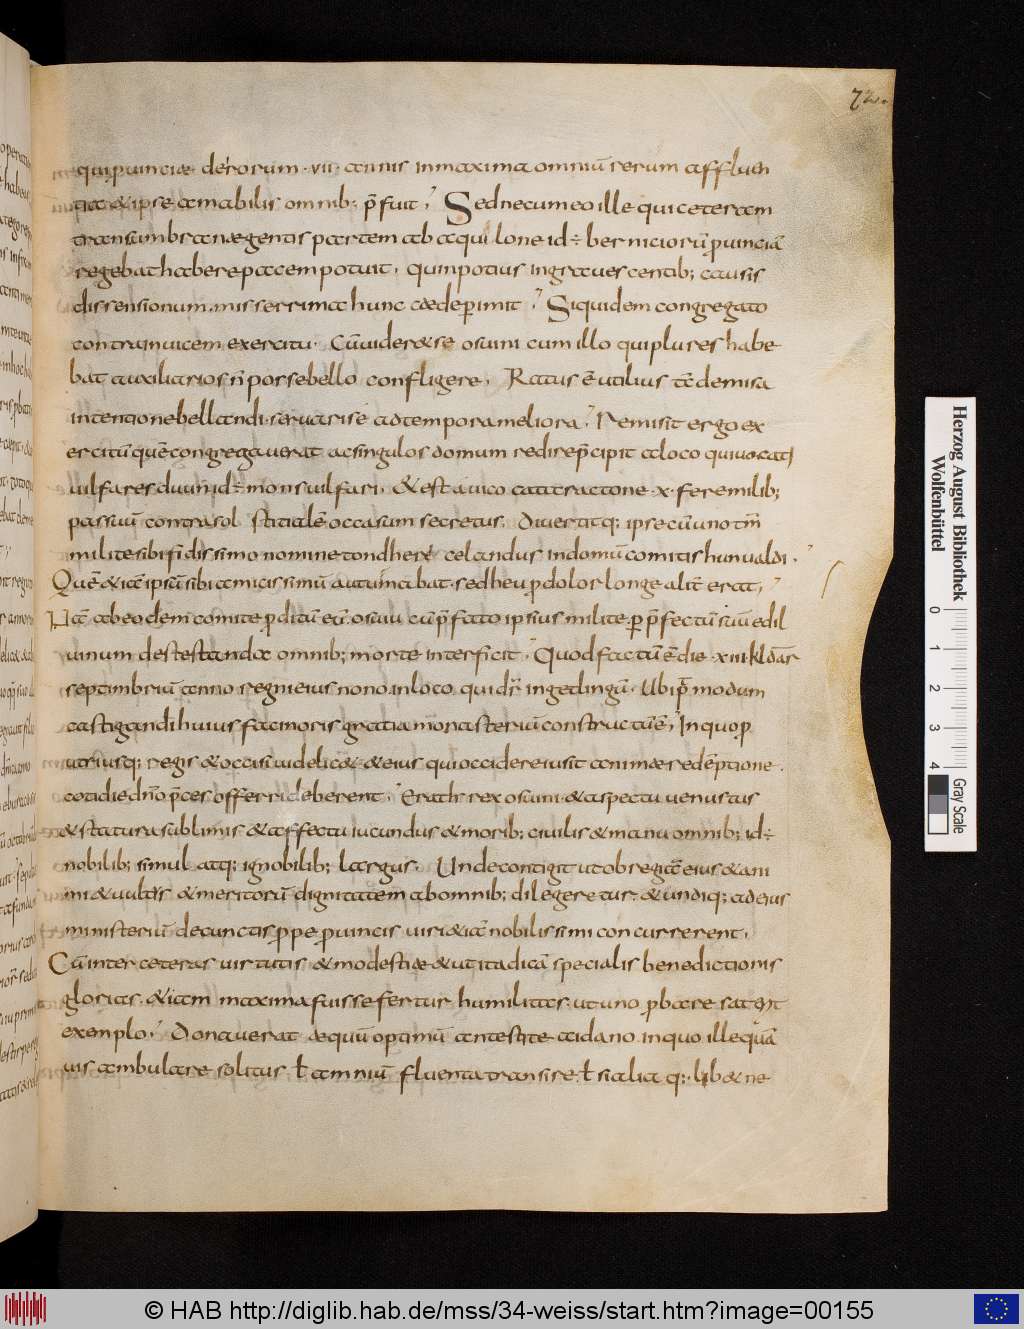 72.
qui puinciæ derorum · vii · annis in maxima omniū rerum affluen
tia & ipse amabilis omnib; p̄fuit; Sed nec um eo ille qui ceteram
transumbranægentis partem ab acquilone id ÷ berniciorū puinciā
regebat habere pacem potuit, quinpotius ingrauescentib; causis
dissensionum, misserrima hunc cæde perimit; Siquidem congregato
contra inuicem exercitu · Cū uider& se osuini cum illo qui plures habe
bat auxiliarios n̄ por se bello confligere, Ratus ē utilius tc̄ demisa
intentione bellandi · seruari se ad tempora meliora; Remisit ergo ex
ercitū quē congregauerat ac singulos domum redire p̄cipit a loco qui uocat'
uulfares duun id ÷ mons uulfari, & est a uico cataractone · x · fere milib;
passuū contra solstitialē occasum secretus, Diuertitq; ipse cū uno tm̄
milite sibi fidissimo nomine tondheré celandus in domū comitis hunualdi ·
Quē & iā ipsū sibi amicissimū autumabat · sed heu p dolor longe alit̄ erat;
Nā ab eodem comite p ditū eū osuiu cū p̄fato ipsius milite p p̄fectū suū edil
uinum destestanda omnib; morte interficit; Quod factū ē die · xiii · kldar
septimbriū anno regni eius nono in loco qui dr̄ ingedlingū · Ubi p̄modum
castigandi huius facinoris gratia monasteriū constructū ē, In quo p
utriusq; regis & occisi uidelic& & eius qui occidere iusit animæ redēptione ·
cotidie dn̄o p̄ces offerri deberent; Erat hr̄ rex osuini & aspectu uenustus
& statura sublimis & affectu iucundus & morib; ciuilis & manu omnib; id ÷
nobilib; simul atq; ignobilib; largus · Unde contigit ut ob regiā eius & ani
mi & uultus & meritorū dignitatem ab omnib; dilegeretur · & undiq; ad eius
ministeriū de cunctis p pe puincis uiri &iā nobilissimi concurrerent,
Cū inter ceteras uirtutis & modestiæ & ut ita dicā specialis benedictionis
glorias · &iam maxima fuisse fertur humilitas · ut uno pbare sat ē
exemplo; Donauerat æquū optimū antestite aidano in quo ille quā
uis ambulare solitus · ł amniū fluenta transire · ł si alia q; · lib& ne
Herzog August Bibliothek
Wolfenbüttel
0 1 2 3 4
Gray Scale
© HAB http://diglib.hab.de/mss/34-weiss/start.htm?image=00155